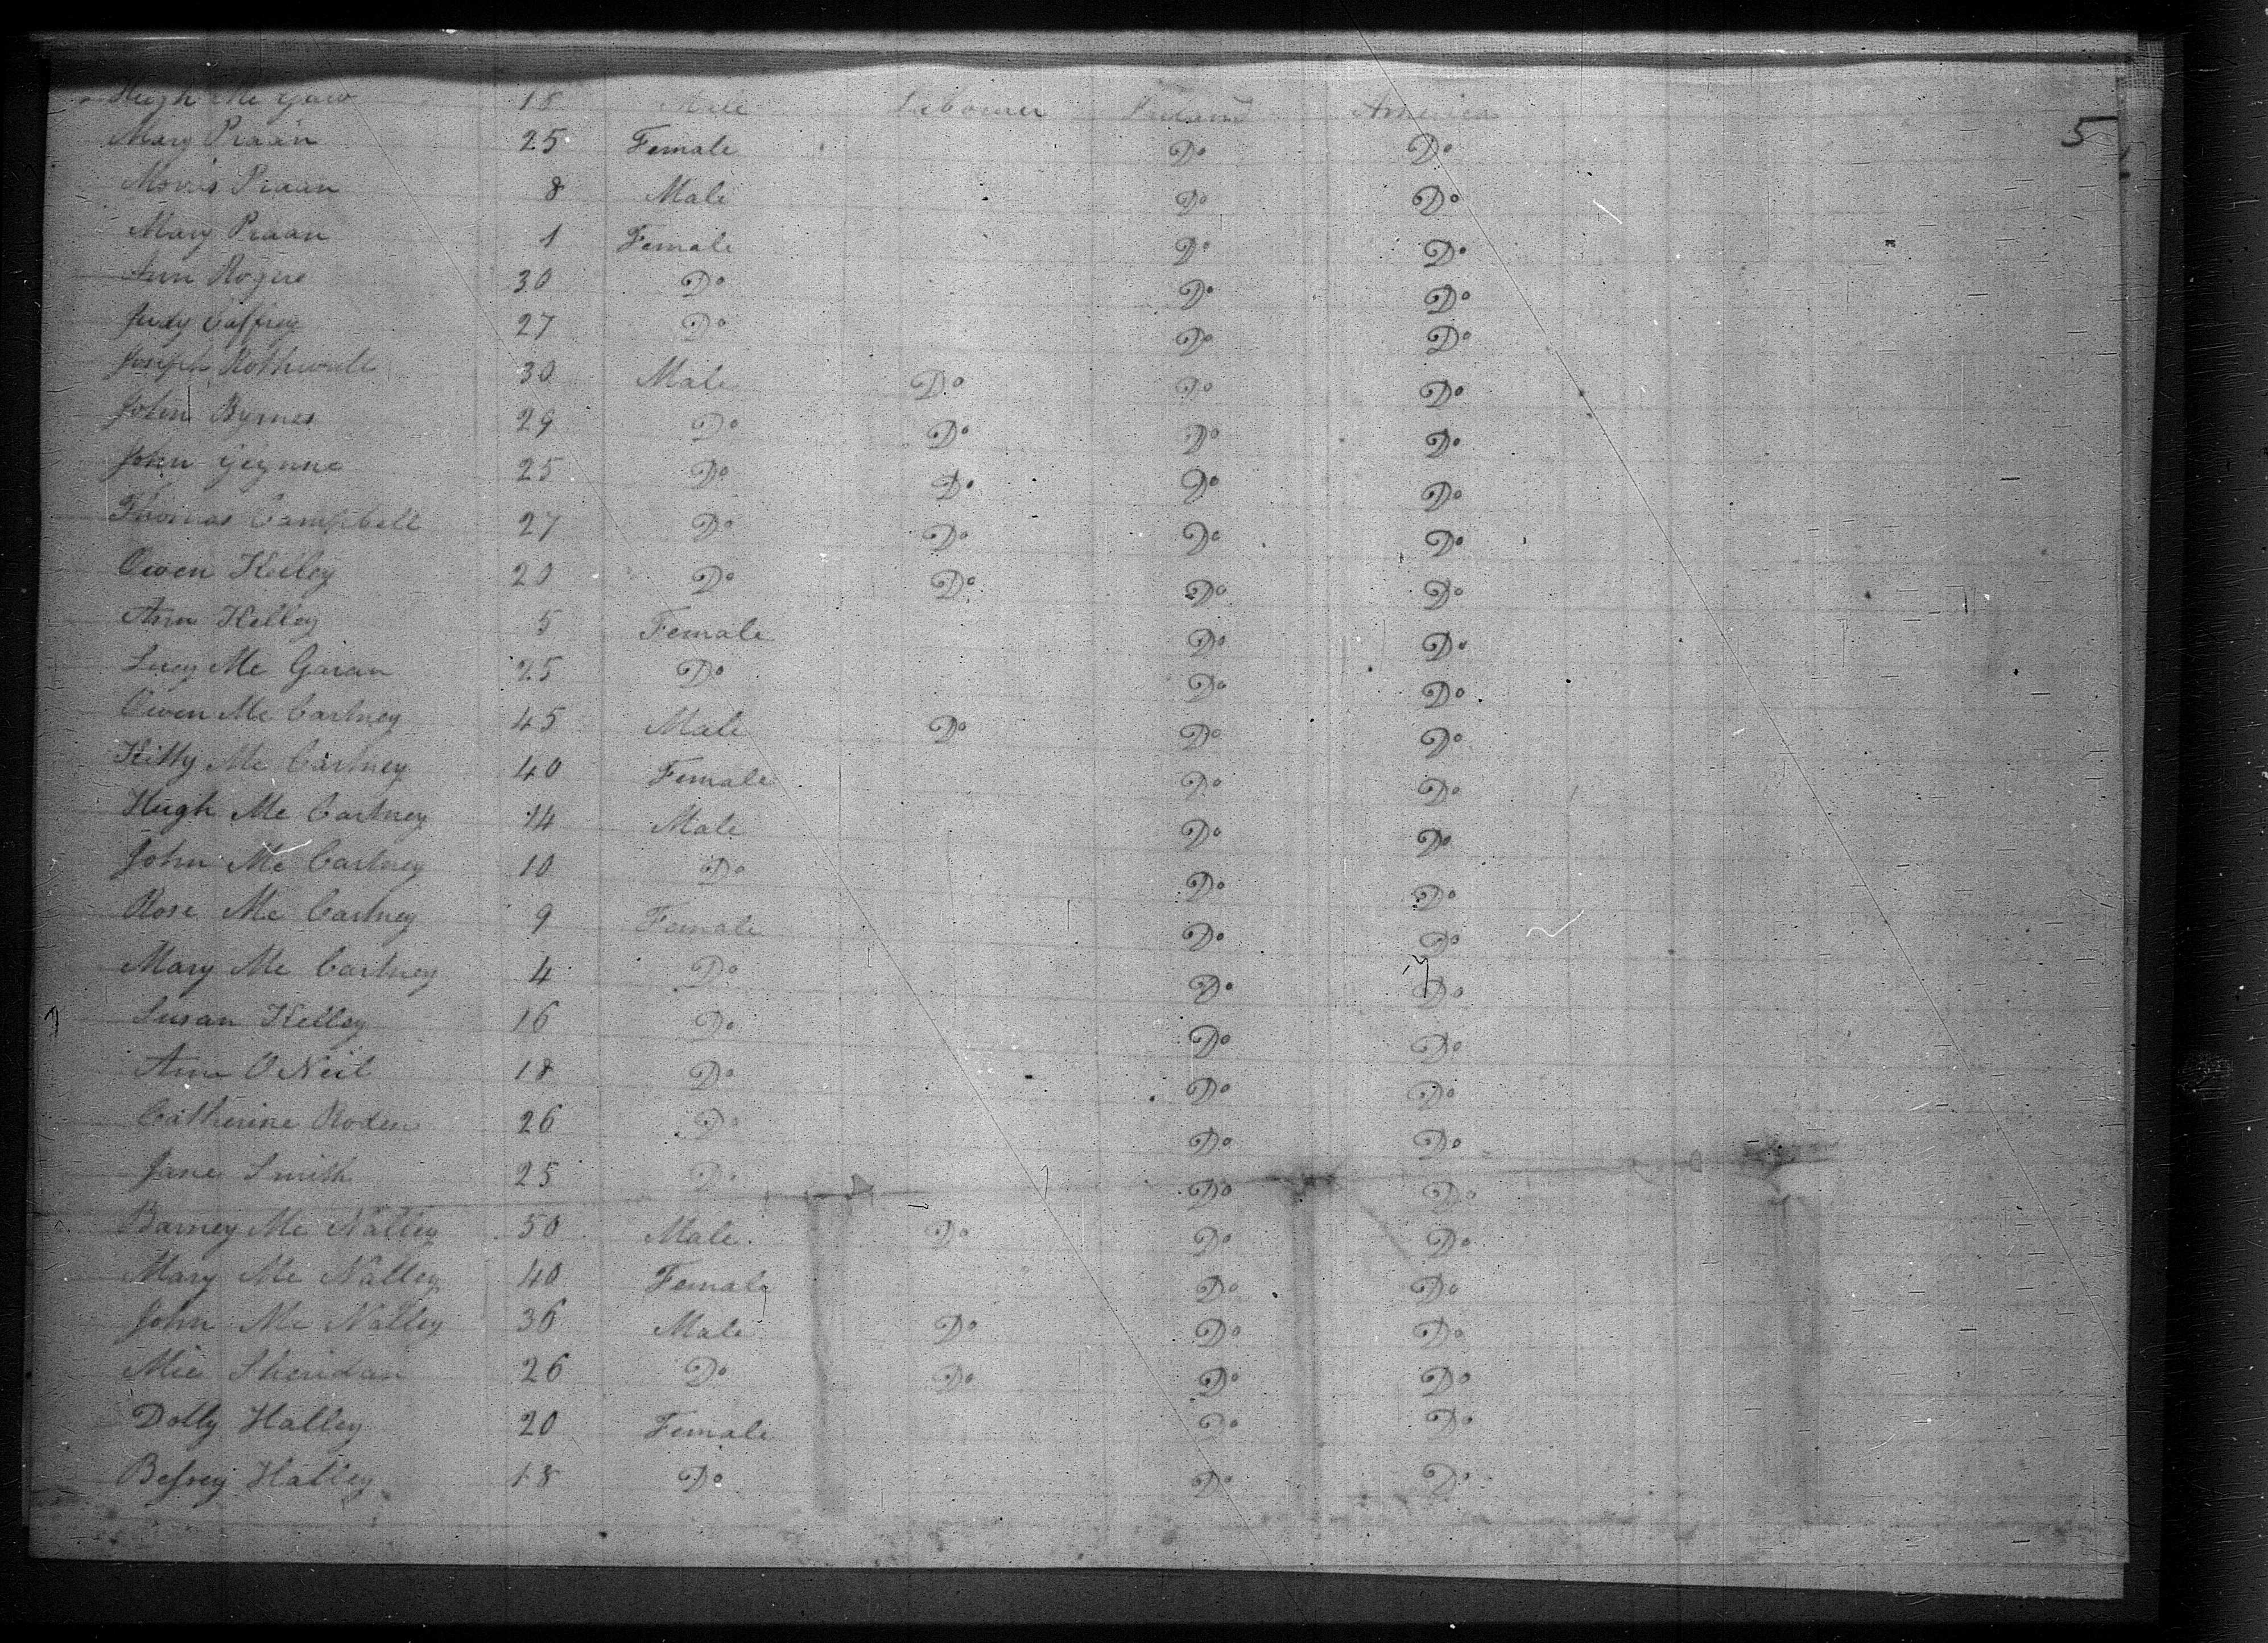 5
Hugh Mc Gaw 18 Male Labourer Ireland America
Mary Praan 25 Female Do Do
Morris Praan 8 Male Do Do
Mary Praan 1 Female Do Do
Ann Rogers 30 Do Do Do
Judy Caffrey 27 Do Do Do
Joseph Rothwell 30 Male Do Do Do
John Byrnes 29 Do Do Do Do
John 25 Do Do Do Do
Thomas Campbell 27 Do Do Do Do
Owen Kelley 20 Do Do Do Do
Ann Kelley 5 Female Do Do
Lucy Mc Garan 25 Do Do Do
Owen Mc Cartney 45 Male Do Do Do
Kitty Mc Cartney 40 Female Do Do
Hugh Mc Cartney 14 Male Do Do
John Mc Cartney 10 Do Do Do
Rose Mc Cartney 9 Female Do Do
Mary Mc Cartney 4 Do Do Do
Susan Kelley 16 Do Do Do
Ann O Neil 18 Do Do Do
Catherine Roden 26 Do Do Do
Jane Smith 25 Do Do Do
Barney Mc Nalley 50 Male Do Do Do
Mary Mc Nalley 40 Female Do Do
John Mc Nalley 36 Male Do Do Do
Mic Sheridan 26 Do Do Do Do
Dolly Halley 20 Female Do Do
Bessey Halley 18 Do Do Do